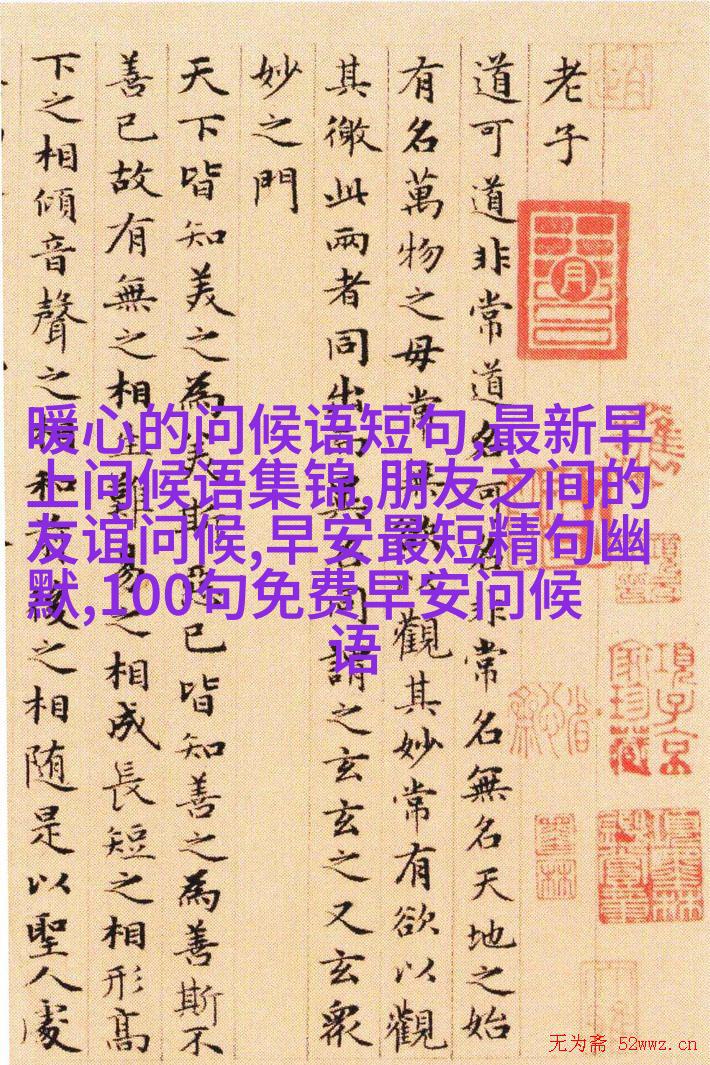 老子
道可道非常道名可名非常名無名天地之始
有名萬物之毋常無欲以觀其妙常有欲以觀
其徼此兩者同出而異名同謂之玄玄之又玄衆
妙之門
天下皆知美之為美斯惡已皆知善之為善斯不
善已故有無之相生難易之相成長短之相形高
下之相傾音聲之相和前後之相随是以聖人處
暖心的问候语短句,最新早
上问候语集锦,朋友之间的
友谊问候,早安最短精句幽
默,100句免费早安问候
语
項子京
家珍藏
无为斋 52wwz.cn